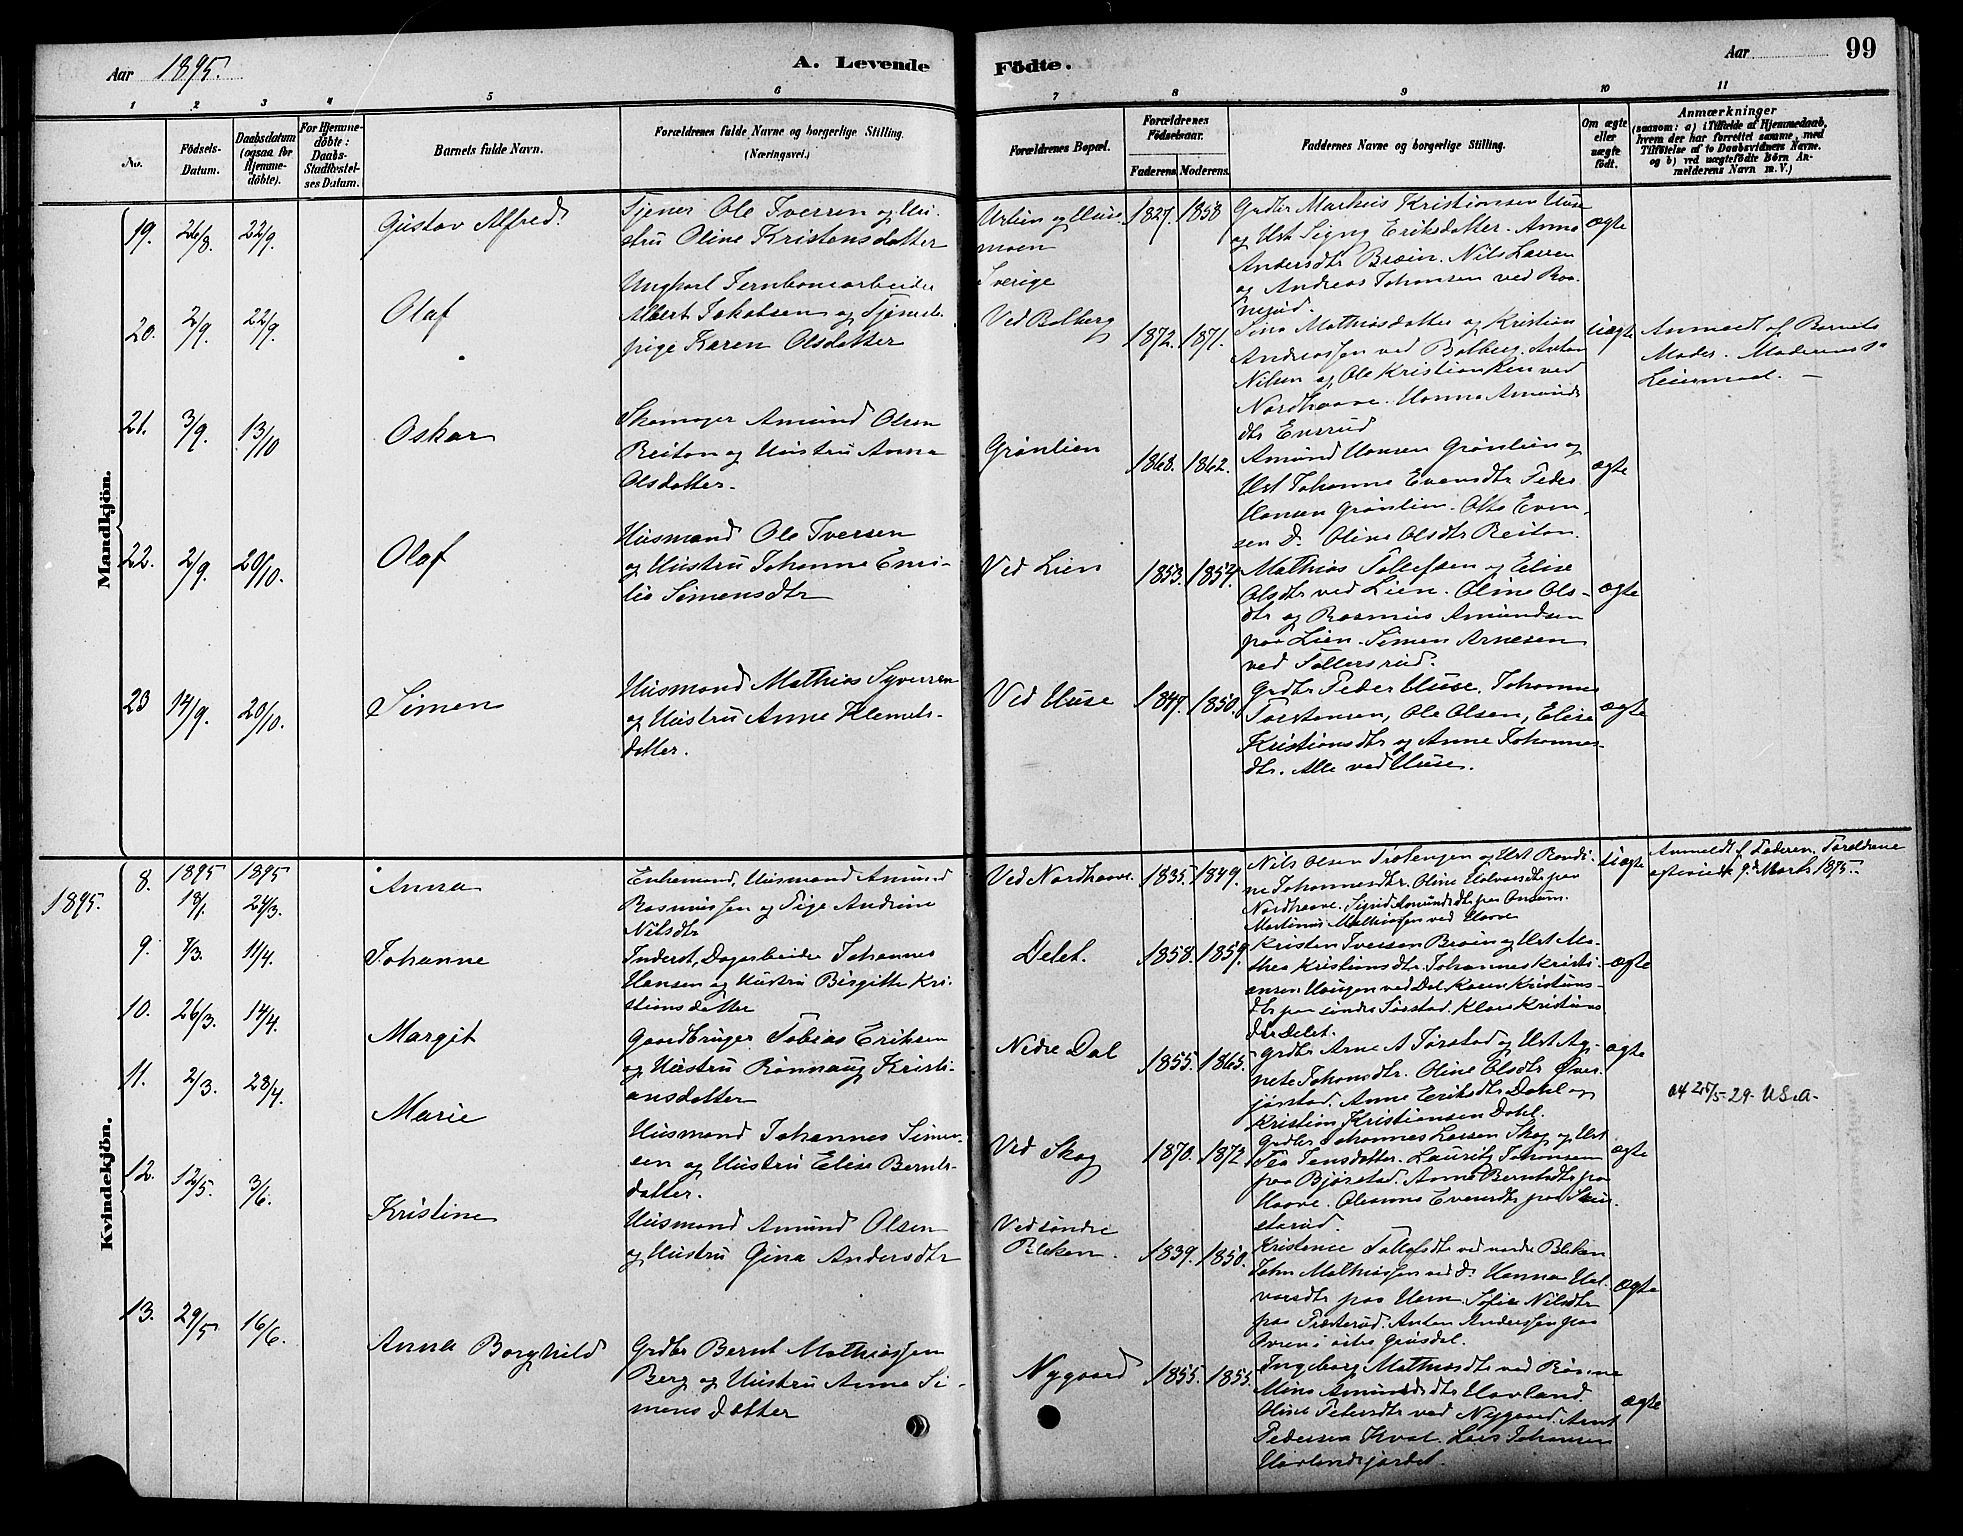 Aar 1895.
A. Levende
Födte.
Aar
99
1
2
3
4
5
6
7
8
9
10
11
No.
Födsels-
Datum.
Daabsdatum
(ogsaa for
Hjemme-
döbte).
For Hjemme-
döbte:
Daabs-
Stadfæstel-
ses Datum.
Barnets fulde Navn.
Forældrenes fulde Navne og borgerlige Stilling.
(Næringsvei.)
Forældrenes Bopæl.
Forældrenes
Födselsaar.
Faderens
Moderens.
Faddernes Navne og borgerlige Stilling.
Om ægte
eller
uægte
födt.
Anmærkninger
(saasom: a) i Tilfælde af Hjemmedaab,
hvem der har forrettet samme, med
Tilföielse af to Daabsvidners Navne.
og b) ved uægtefödte Börn An-
melderens Navn m. V.)
Mandkjön.
19. 26/8. 22/9. Gustav Alfred.
Tjener Ole Iversen og Hu-
stru Oline Kristensdatter
moen
Sverige
1827. 1858
Grdbr Markus Kristiansen Huse
og Hst Signe Eriksdatter. Anne
Andersdtr Bræin. Nils Larsen
og Andreas Johansen ved
ægte
20. 2/9. 22/9. Olaf
Ungkarl Jernbanearbeider
Albert Jakobsen og Tjeneste-
pige Karen Olsdatter
Ved Bolberg
1872. 1871.
Mathiasdatter og Kristian
Andreassen ved Bolberg. Anton
Nilsen og Ole Kristiansen ved
Nordhaave. Hanna Amunds
dtr Enerud
uægte
Anmeldt af Barnets
Moder. Moderens
Leiermaal. —
21. 3/9. 13/10 Oskar
Skomager Amund Olsen
Reiton og Hustru Anna
Olsdatter.
Grønlien
1868. 1862.
Amund Hansen Grønlien og
Hst Johanne Evensdtr Peder
Hansen Grønlien. Otto Even-
sen Do. Oline Olsdtr Reiton.
ægte
22. 2/9. 20/10. Olaf
Husmand Ole Iversen
og Hustru Johanne Emi-
lie Simensdtr
Ved Lien
1853. 1854.
Mathias Tollefsen og Elise
Olsdtr ved Lien. Oline Ols-
dtr og Rasmus Amundsen
paa Lien. Simen Arnesen
ved Tollersrud.
ægte
23 14/9. 20/10. Simen
Husmand Mathias Syversen
og Hustru Anne Klemets-
datter.
Ved Huse
1847. 1850.
Grdbr Peder Huse. Johannes
Torstensen, Ole Olsen, Elise
Kristiansdtr og Anne Johannes-
dtr. Alle ved Huse.
ægte
Kvindekjön.
1895.
8. 1895 18/1. 1895 24/3. Anna
Enkemand, Husmand Amund
Rasmussen og Pige Andrine
Nilsdtr
Ved Nordhaave.
1835. 1849.
Nils Olsen Trolengen og Hst Randi-
ne Johannesdtr. Oline Halvorsdtr paa
Nordhaave. Sigrid Amundsdtr paa
Martinus Mathiassen ved Haave
uægte
Anmeldt af Faderen. Forældrene
ægteviede 9de Marts 1895.
9. 7/3. 11/4. Johanne
Inderst, Dagarbeider Johannes
Hansen og Hustru Birgitte Kri-
stiansdatter
Delet.
1858. 1859.
Kristen Iversen Bræin og Hst Ma-
thea Kristiansdtr. Johannes Kristi-
ansen Haugen ved Dal. Karen Kristians-
dtr paa søndre Jørstad. Klara Kristians
dtr Delet.
ægte
10. 26/3. 14/4. Margit
Gaardbruger Tobias Eriksen
og Hustru Rønnaug Kristi-
ansdatter
Nedre Dal
1855. 1865.
Grdbr Arne A Jørstad og Hst Ag-
nete Johansdtr. Oline Olsdtr Øver-
jørstad. Anne Eriksdtr Dahl og
Kristian Kristiansen Dahl.
ægte
11. 2/3. 28/4. Marie
Husmand Johannes Simen-
sen og Hustru Elise Bernts-
datter.
Ved Skog
1870. 1872
Grdbr Johannes Larsen Skog og Hst
Jensdatter. Lauritz Johansen
paa Bjørstad. Anne Berntsdtr paa
Haave. Oleanna Evensdtr paa
ægte
24/5-29. U.S.A.
12. 12/5. 3/6. Kristine
Husmand Amund Olsen
og Hustru Gina Andersdtr
Ved søndre
Bleken.
1839. 1850.
Kristence Tollefsdtr ved nordre Bleken
John Mathiassen ved Do. Hanna Hal-
vorsdtr paa Ham. Sofie Nilsdtr
paa Præsterud. Anton Anderssen paa
ægte
13. 29/5 16/6. Anna Borghild
Grdbr Bernt Mathiassen
Berg og Hustru Anna Si-
mensdatter
Nygaard
1855. 1855.
Ingeborg Mathiasdtr ved
Mina Amundsdtr Havland.
Oline Petersdtr ved Nygaard. Arnt
Pedersen Kval. Lars Johansen
Havlandsjordet.
ægte